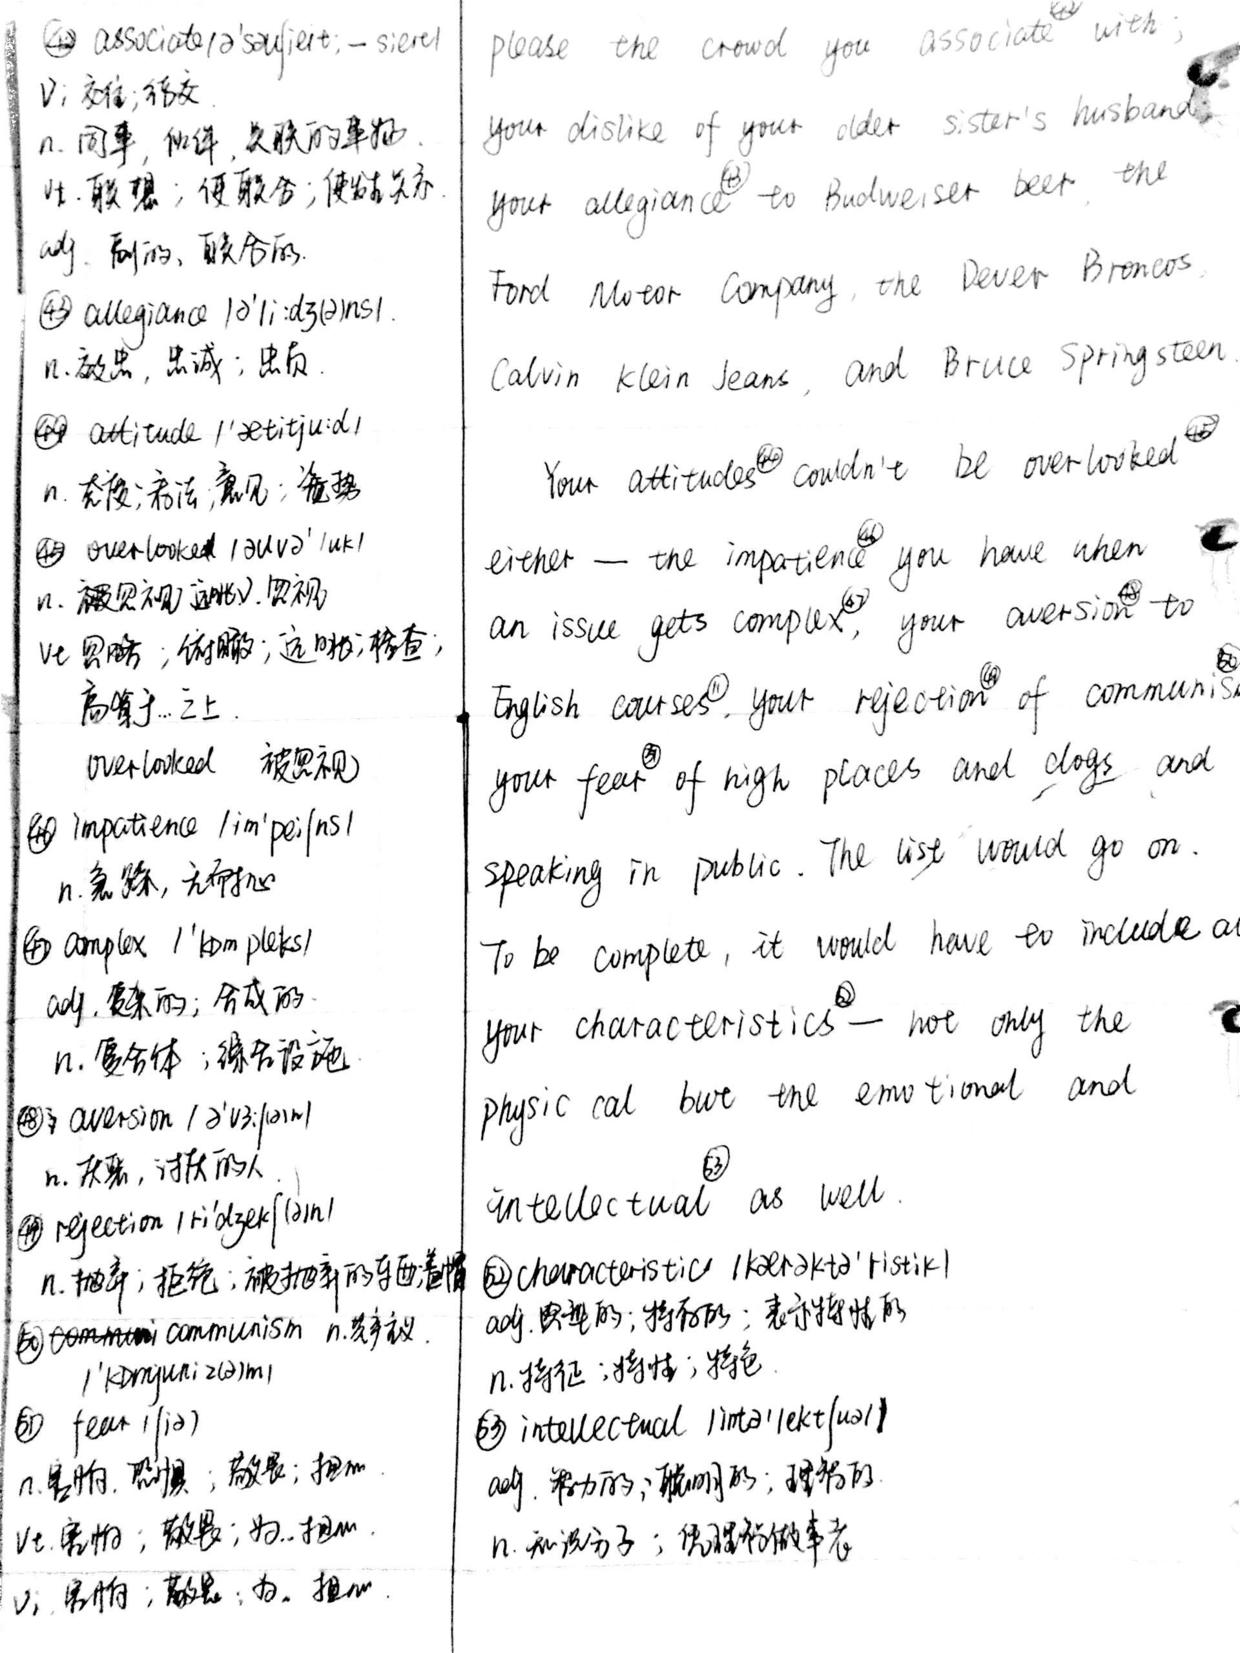 ㊷ associate /ə'səuʃieit; -sieit/
vi 交往;结交
n. 同事, 伙伴, 关联的事物.
vt. 联想; 使联合; 使发生关系.
adj. 副的、联合的.
㊸ allegiance /ə'li:dʒ(ə)ns/.
n. 效忠, 忠诚; 忠贞.
㊹ attitude /'ætitju:d/
n. 态度;看法;意见;姿势
㊺ overlooked /əuvə'luk/
n. 被忽视 远眺v.忽视
vt 忽略; 俯瞰; 远眺;检查;
高耸于...之上.
overlooked 被忽视
㊻ impatience /im'peiʃns/
n. 急躁, 无耐心
㊼ complex /'kɒmpleks/
adj. 复杂的; 合成的.
n. 复合体; 综合设施.
㊽ aversion /ə'vɜ:ʃ(ə)n/
n. 厌恶, 讨厌的人.
㊾ rejection /ri'dʒekʃ(ə)n/
n. 抛弃; 拒绝; 被抛弃的东西;盖帽
㊿ communism n.共产主义.
/'kɒmjuniz(ə)m/
51 fear /fiə/
n.害怕.恐惧; 敬畏; 担心.
vt. 害怕; 敬畏; 为...担心.
vi. 害怕; 敬畏; 为.. 担心.
please the crowd you associate㊷ with;
your dislike of your older sister's husband,
your allegiance㊸ to Budweiser beer, the
Ford Motor Company, the Dever Broncos,
Calvin Klein Jeans, and Bruce Springsteen.
Your attitudes㊹ couldn't be overlooked㊺
either — the impatience㊻ you have when
an issue gets complex㊼, your aversion㊽ to
English courses⑪, your rejection㊾ of communism㊿
your fear51 of high places and dogs and
speaking in public. The list would go on.
To be complete, it would have to include al
your characteristics52 — not only the
physic cal but the emotional and
intellectual53 as well.
52 characteristic /kærəktə'ristik/
adj. 典型的; 特有的; 表示特性的
n. 特征; 特性; 特色.
53 intellectual /intə'lektʃuəl/
adj. 智力的; 聪明的; 理智的.
n. 知识分子; 凭理智做事者